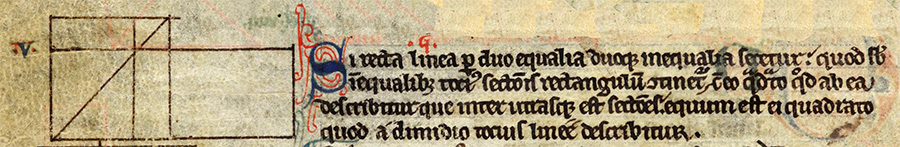 .v. .q.
Si recta linea p duo equalia duoq; inequalia secetur: quod sb
inequalib; toci9 sectōis rectanguluȝ ɔtinetr, cū eo qdrato qd ab ea
describitur que inter utrasq; est sectões. equum est ei quadrato
quod a dimidio tocius lineę describitur.